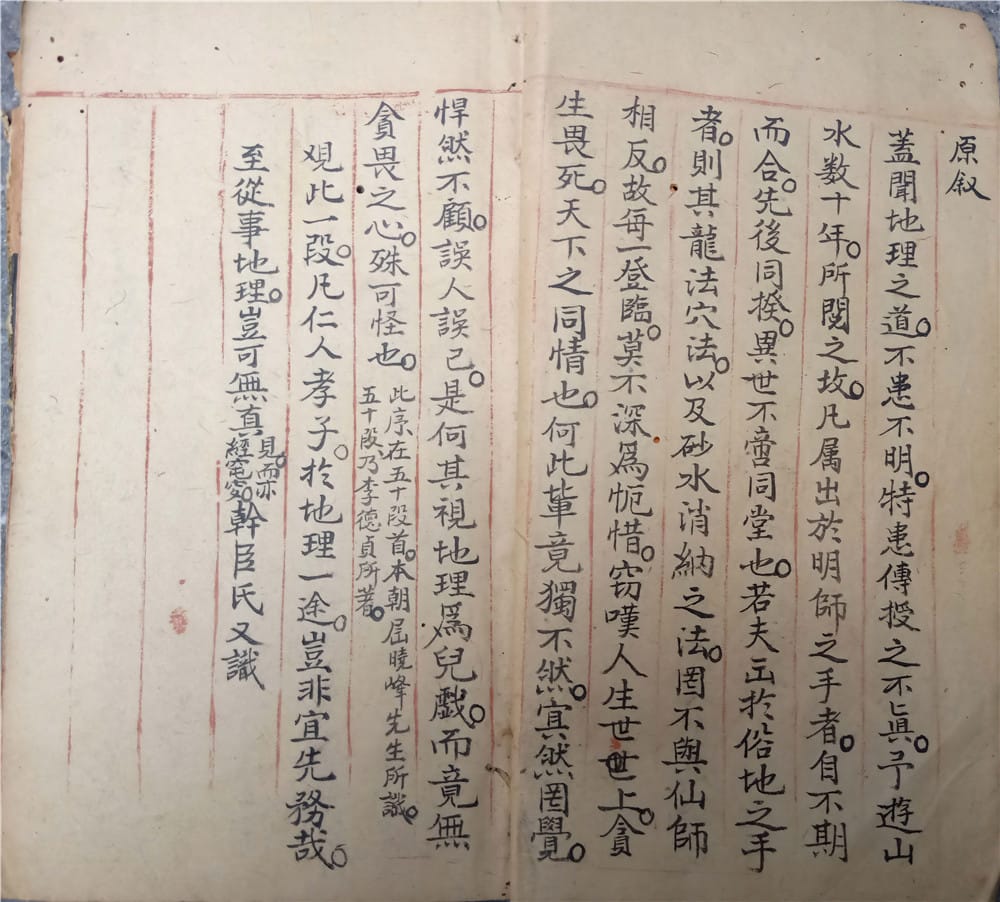 原叙
蓋聞地理之道。不患不明。特患傳授之不眞。予遊山
水数十年。所閱之坟。凡属出於明師之手者。自不期
而合。先後同揆。異世不啻同堂也。若夫出於俗地之手
者。則其龍法穴法。以及砂水消納之法。罔不與仙師
相反。故每一登臨。莫不深爲怩惜。窃嘆人生世世上。貪
生畏死。天下之同情也。何此輩竟獨不然。寘然罔覺。
悍然不顧。誤人誤己。是何其視地理爲兒戲。而竟無
貪畏之心。殊可怪也。
此序在五十段首。本朝屈曉峰先生所識。
五十段乃李德貞所著。
观此一段。凡仁人孝子。於地理一途。豈非宜先務哉。
至從事地理。豈可無真
見。而亦
經窀穸。
幹臣氏又識